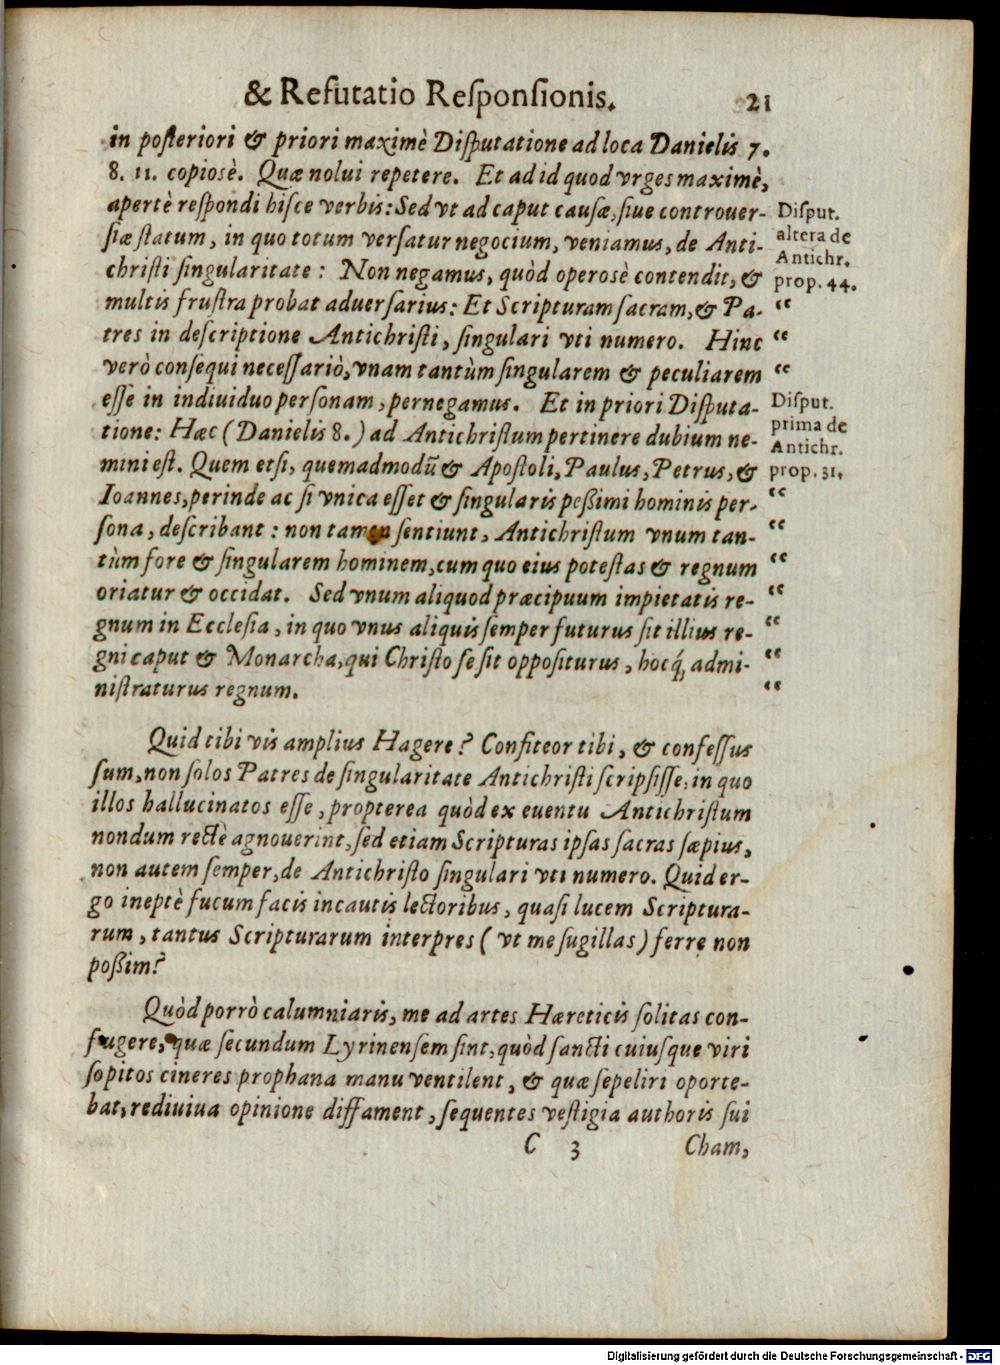 & Refutatio Reſponſionis. 21
in poſteriori & priori maximè Diſputatione ad loca Danielis 7.
8. 11. copioſè. Quæ nolui repetere. Et ad id quod vrges maximè,
apertè reſpondi hiſce verbis: Sed vt ad caput cauſæ, ſiue controuer-
ſiæ ſtatum, in quo totum verſatur negocium, veniamus, de Anti-
chriſti ſingularitate: Non negamus, quòd operosè contendit, &
multis fruſtra probat aduerſarius: Et Scripturam ſacram, & Pa-
tres in deſcriptione Antichriſti, ſingulari vti numero. Hinc
verò conſequi neceſſariò, vnam tantùm ſingularem & peculiarem
eſſe in indiuiduo perſonam, pernegamus. Et in priori Diſputa-
tione: Hæc (Danielis 8.) ad Antichriſtum pertinere dubium ne-
mini eſt. Quem etſi, quemadmodũ & Apoſtoli, Paulus, Petrus, &
Ioannes, perinde ac ſi vnica eſſet & ſingularis peßimi hominis per-
ſona, deſcribant: non tamen ſentiunt, Antichriſtum vnum tan-
tùm fore & ſingularem hominem, cum quo eius poteſtas & regnum
oriatur & occidat. Sed vnum aliquod præcipuum impietatis re-
gnum in Eccleſia, in quo vnus aliquis ſemper futurus ſit illius re-
gni caput & Monarcha, qui Chriſto ſe ſit oppoſiturus, hocq́; admi-
niſtraturus regnum.
Diſput.
altera de
Antichr.
prop. 44.
“
“
“
Diſput.
prima de
Antichr.
prop. 31.
“
“
“
“
“
“
“
Quid tibi vis amplius Hagere? Confiteor tibi, & confeſſus
ſum, non ſolos Patres de ſingularitate Antichriſti ſcripſiſſe, in quo
illos hallucinatos eſſe, propterea quòd ex euentu Antichriſtum
nondum rectè agnouerint, ſed etiam Scripturas ipſas ſacras ſæpius,
non autem ſemper, de Antichriſto ſingulari vti numero. Quid er-
go ineptè fucum facis incautis lectoribus, quaſi lucem Scriptura-
rum, tantus Scripturarum interpres (vt me ſugillas) ferre non
poßim?
Quòd porrò calumniaris, me ad artes Hæreticis ſolitas con-
fugere, quæ ſecundum Lyrinenſem ſint, quòd ſancti cuiuſque viri
ſopitos cineres prophana manu ventilent, & quæ ſepeliri oporte-
bat, rediuiua opinione diffament, ſequentes veſtigia authoris ſui
C 3 Cham,
Digitalisierung gefördert durch die Deutsche Forschungsgemeinschaft - DFG